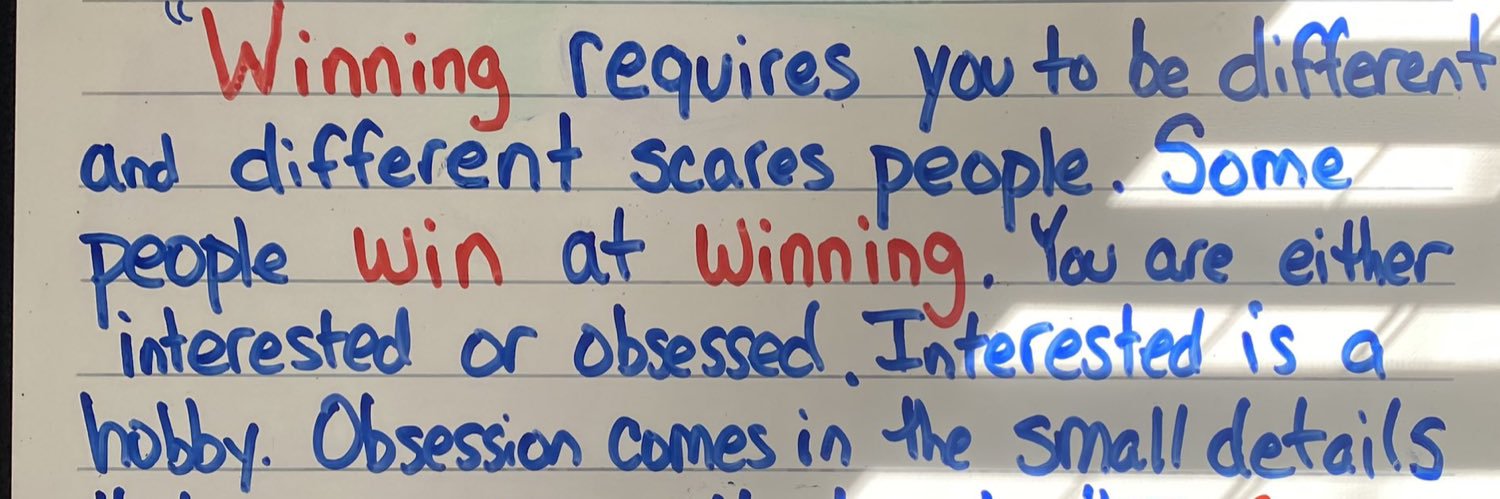 "Winning requires you to be different
and different scares people. Some
people win at winning. You are either
interested or obsessed. Interested is a
hobby. Obsession comes in the small details